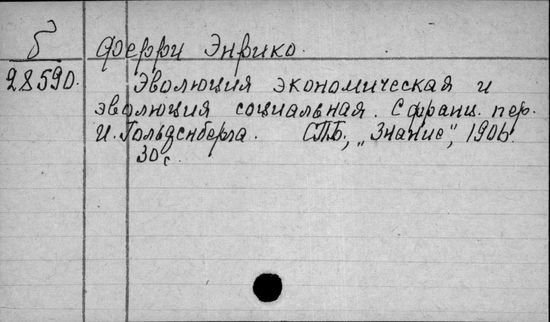 Б Ферри Энрико.
28590. Эволюция экономическая и
эволюция социальная. С франц. пер.
И. Гольденберга. СПБ, „Знание", 1906.
30 с.